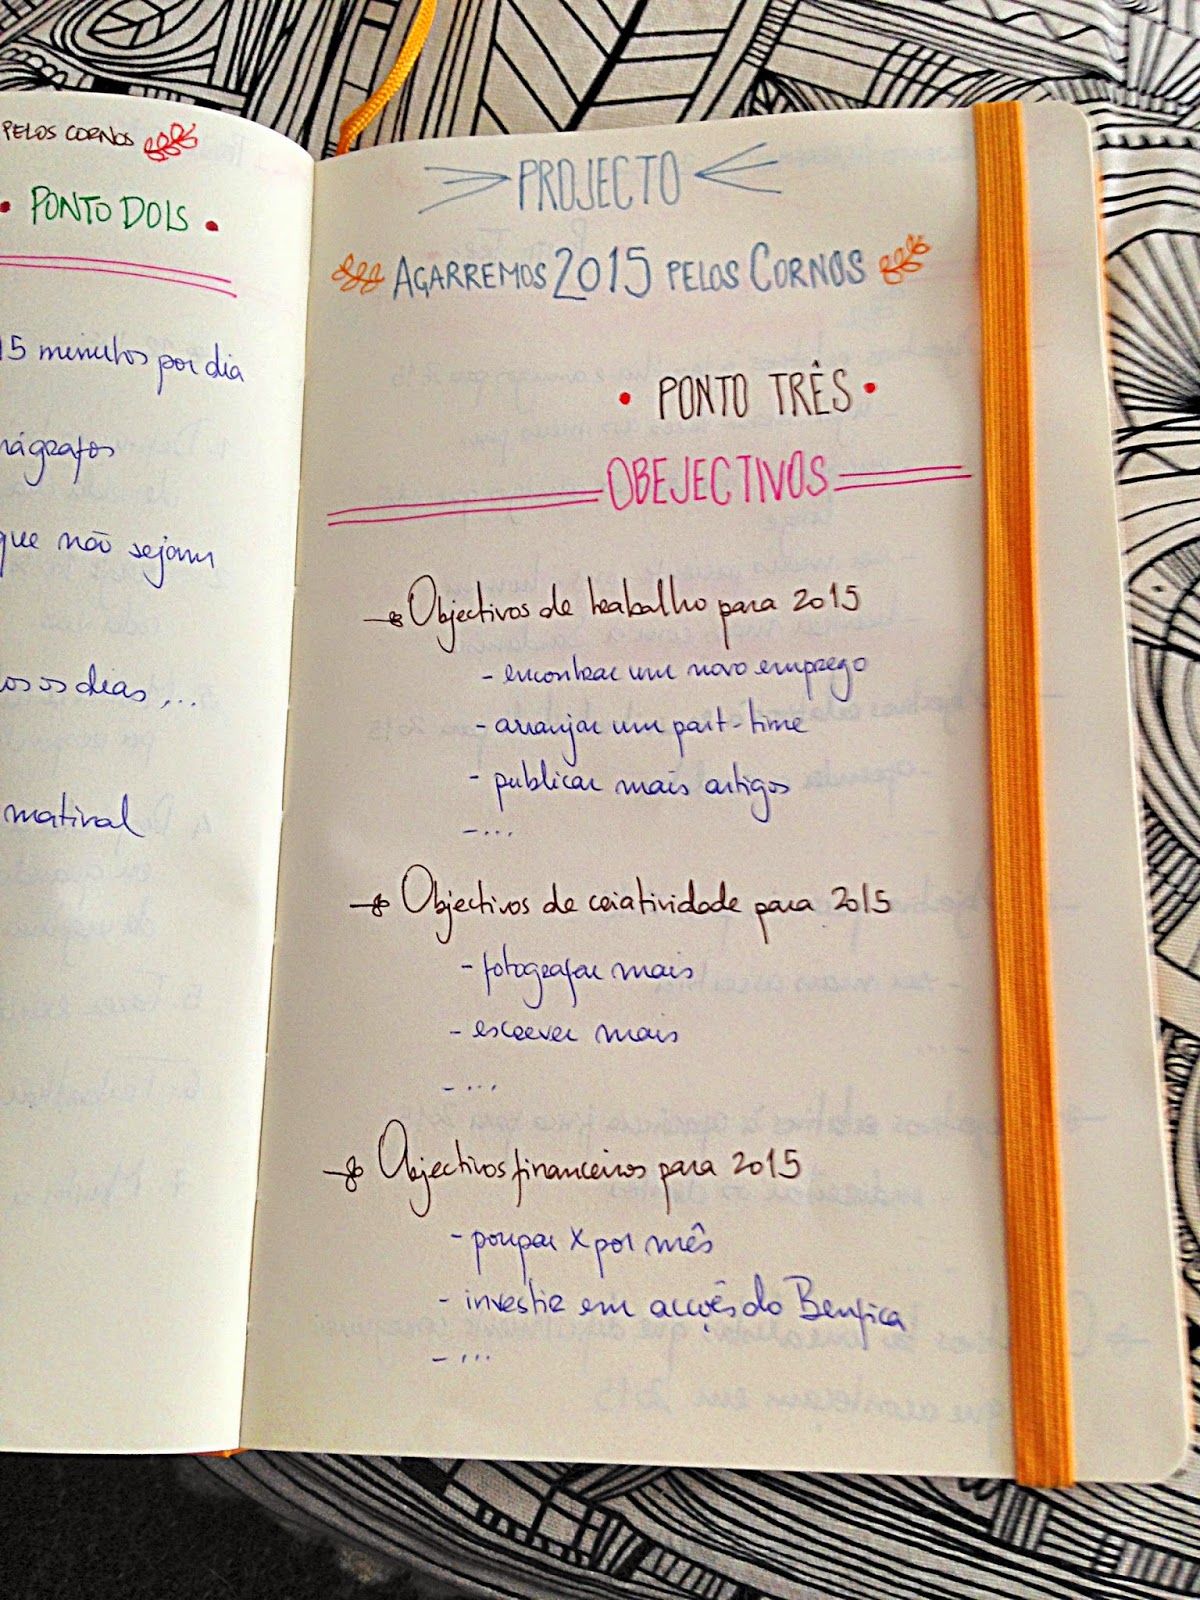 PELOS CORNOS
• PONTO DOIS •
15 minutos por dia
que não sejam
os os dias,...
matinal
PROJECTO
AGARREMOS 2015 PELOS CORNOS
• PONTO TRÊS •
OBEJECTIVOS
Objectivos de trabalho para 2015
- encontrar um novo emprego
- arranjar um part-time
- publicar mais artigos
- ...
Objectivos de criatividade para 2015
- fotografar mais
- escrever mais
- ...
Objectivos financeiros para 2015
- poupar X por mês
- investir em acções do Benfica
- ...